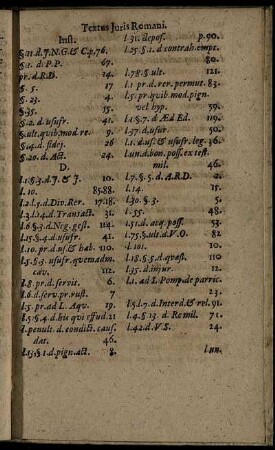 Textus Juris Romani.
Inst.
§ 11. d. J. N. G & C. p. 76.
§ 1. d. P. P. 67.
pr. d. R. D. 14.
§. 5. 17
§. 23. 4.
§ 35. 15.
§. 2. d. usufr. 41
§. ult. qvib. mod. re 9.
§ 14. d. fidej. 26
§. 20. d. Act. 24.
D.
l. 1. §. 3. d. J. & J. 10.
l. 10. 85. 88.
l. 2. l. 5. d. Div. Rer. 17. 18.
l. 3. l. 14. d. Transact. 31.
l. 6 §. 3. d. Neg. gest. 114.
l. 15. §. 4. d. usufr. 41.
l. 10. pr. d. us & hab. 110.
l. 5. §. 3. usufr. quemadm.
cav. 112.
l. 8. pr. d. servit. 6.
l. 6. d. serv. pr. rust. 7
l. 5. pr. ad L. Aqv. 19.
l. 5. §. 4. d. his qui effud. 21
l. penult. d. condict. caus.
dat. 46.
l. 13. § 1. d. pign. act. 8.
l. 31. depos. p. 90.
l. 25. §. 1. d. contrah. empt.
80.
l. 78. § ult. 121.
l. 1. pr. d. rer. permut. 83.
l. 5. pr. qvib. mod. pign.
vel hyp. 59.
l. 1. §. 7. d Æd Ed. 119.
l. 37. d. usur. 50.
l. 1. d. us. & usufr. leg. 36.
l. un. d. bon. poss. ex test.
mil. 46.
l. 7. §. 5. d. A. R. D. 2.
l. 14. 15.
l. 30. §. 3. 5.
l. 55. 48.
l. 51. d. acq. poss. 53.
l. 75. § ult. d. V. O. 82
l. 101. 10.
l. 18. §. 5. d. quæst. 110.
l. 35. d. injur. 12.
l. 1. ad L Pomp. de parric.
23.
l. 5. l. 7. d. Interd. & rel. 91.
l. 4. § 13. d. Re mil. 71.
l. 42. d. V. S. 24.
l. un.